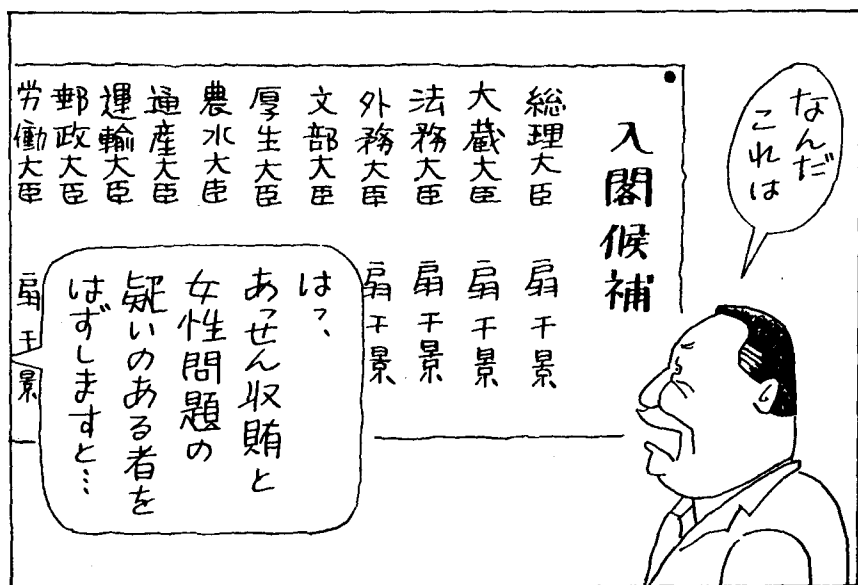 なんだ
これは
入閣候補
総理大臣 扇千景
大蔵大臣 扇千景
法務大臣 扇千景
外務大臣 扇千景
文部大臣
厚生大臣
農水大臣
通産大臣
運輸大臣
郵政大臣
労働大臣 扇千景
はっ、
あっせん収賄と
女性問題の
疑いのある者を
はずしますと…